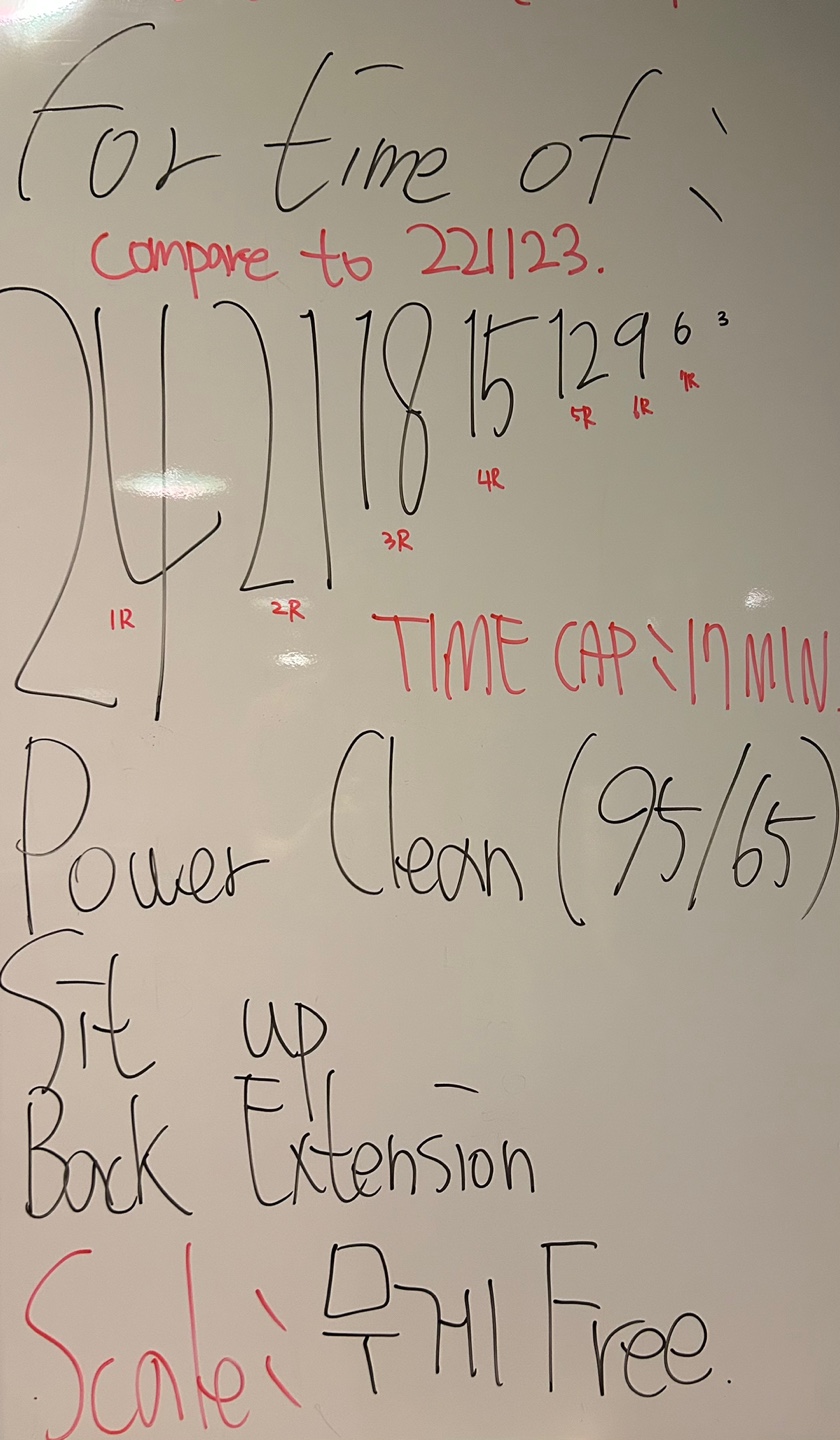 For time of :
Compare to 221123.
24 21 18 15 12 9 6 3
1R 2R 3R 4R 5R 6R 7R
TIME CAP : 17 MIN.
Power Clean (95/65)
Sit up
Back Extension
Scale : 무게 Free.